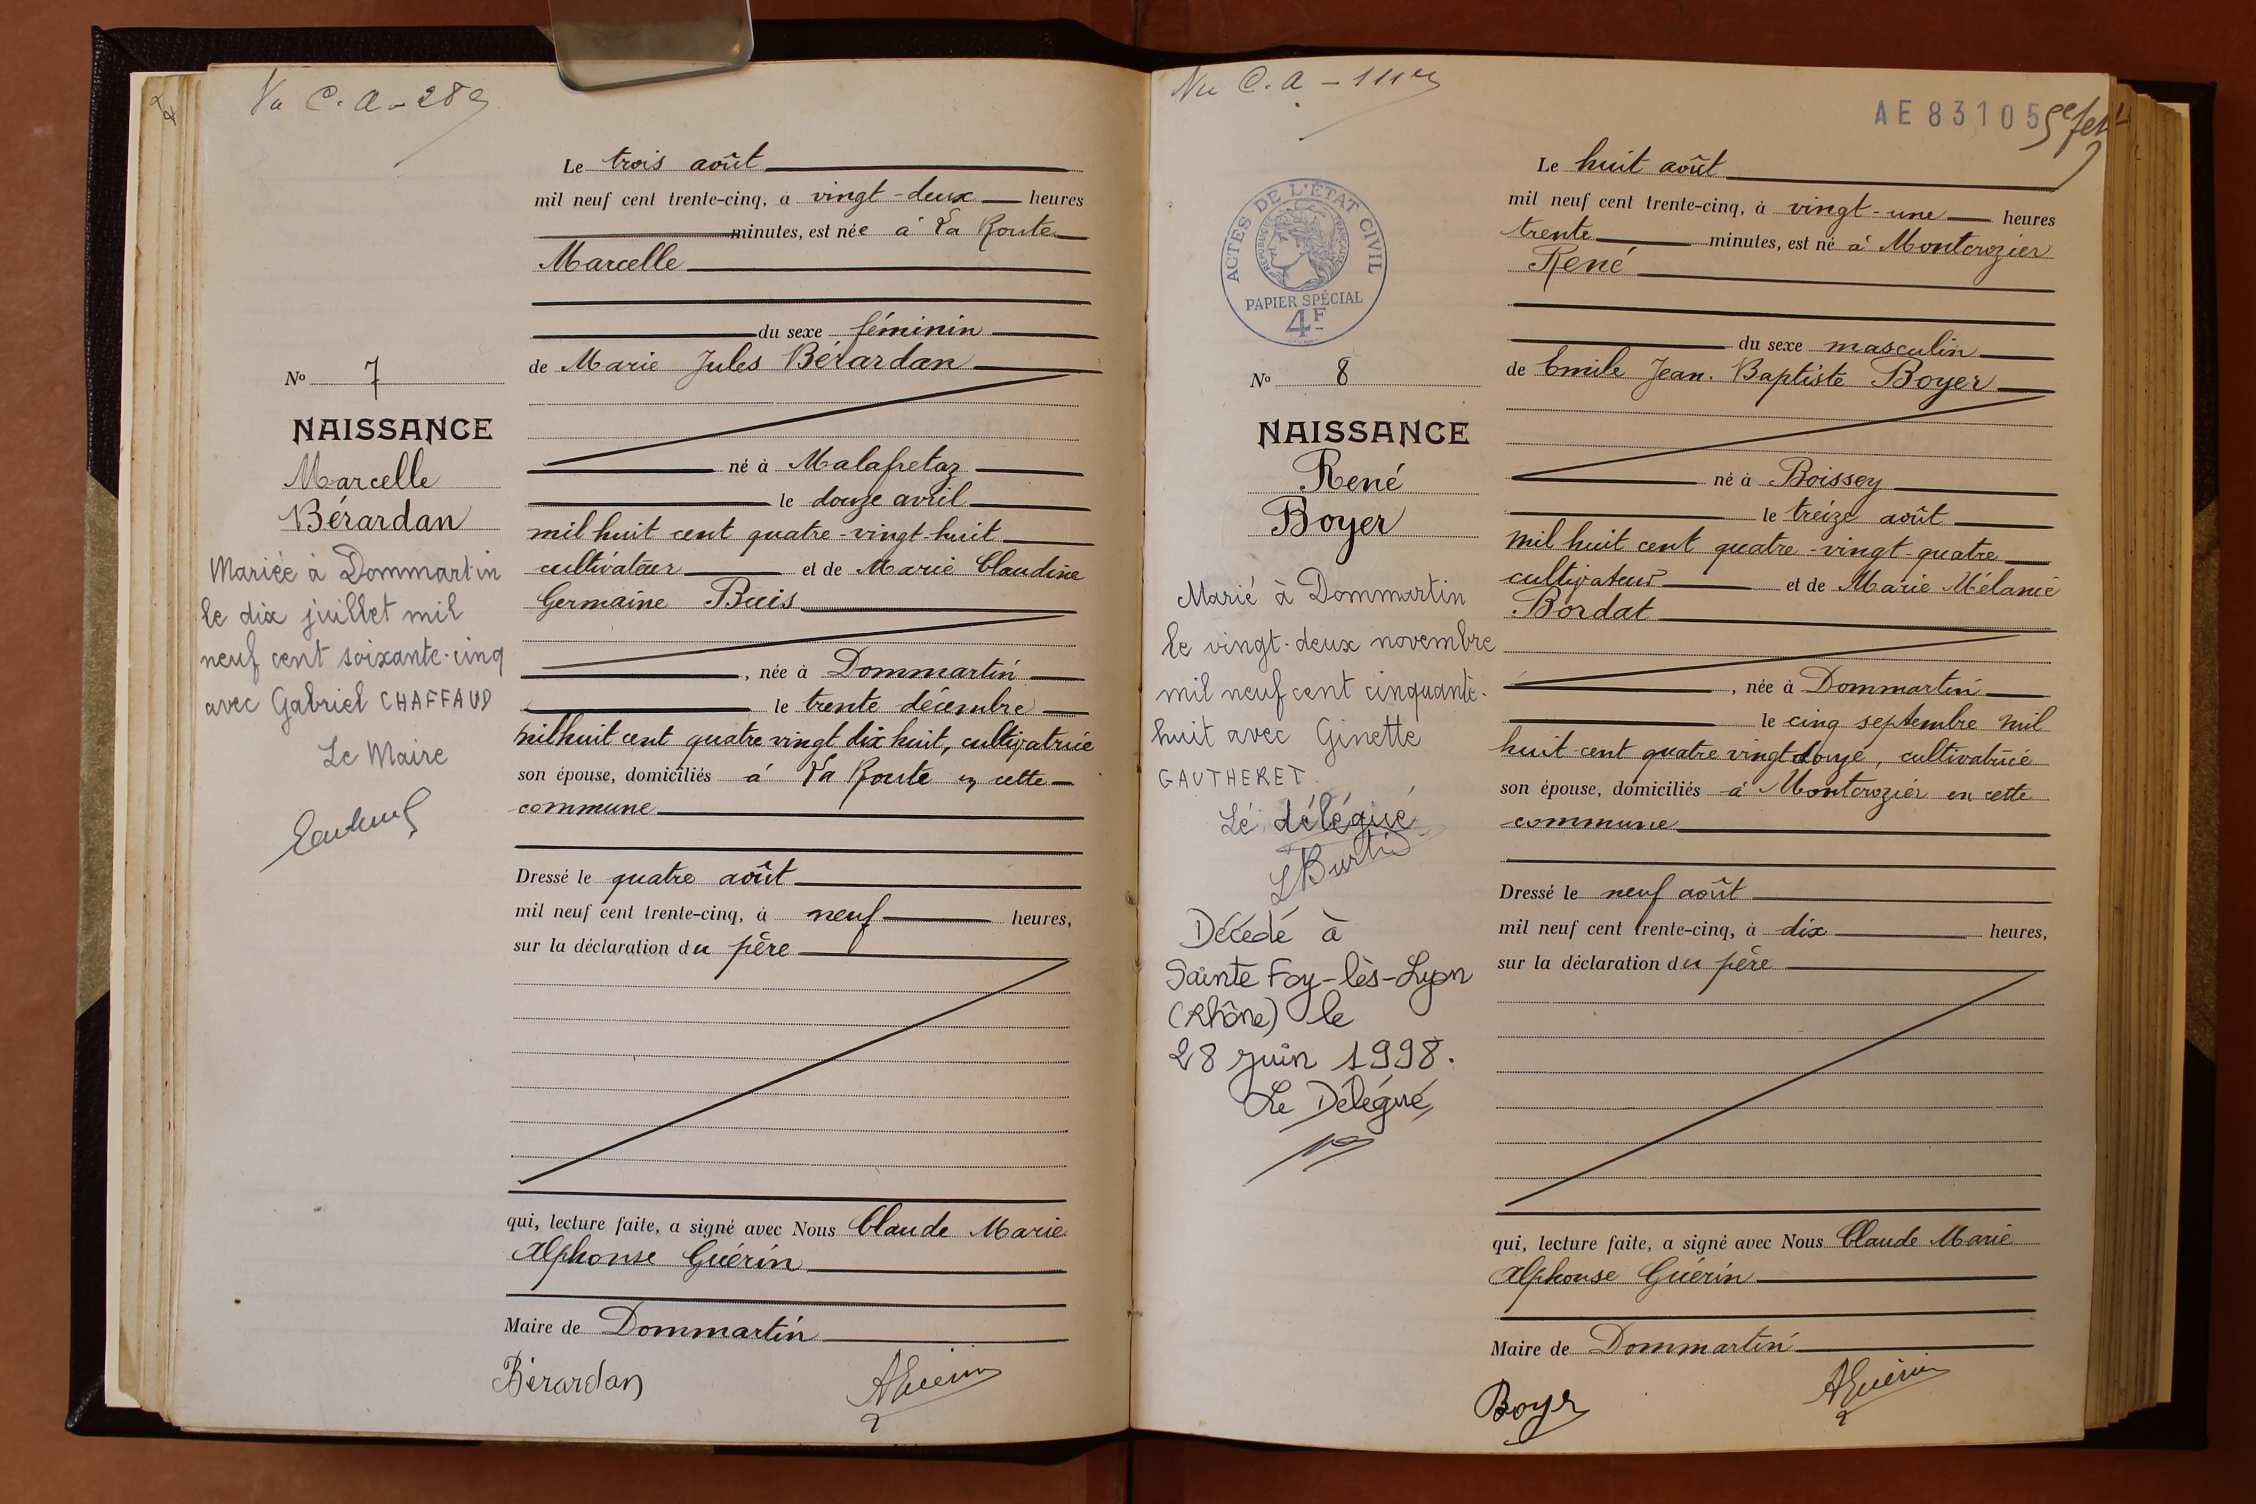 Vu C. A - 28
Le trois août
mil neuf cent trente-cinq, à vingt-deux heures
minutes, est née à La Route
Marcelle
du sexe féminin
No 7
de Marie Jules Bérardan
NAISSANCE
Marcelle
Bérardan
né à Malafretaz
le douze avril
mil huit cent quatre-vingt-huit
cultivateur et de Marie Claudine
Germaine Buis
Mariée à Dommartin
le dix juillet mil
neuf cent soixante-cinq
avec Gabriel CHAFFAUD
Le Maire
, née à Dommartin
le trente décembre
mil huit cent quatre vingt dix huit, cultivatrice
son épouse, domiciliés à La Route en cette
commune
Dressé le quatre août
mil neuf cent trente-cinq, à neuf heures,
sur la déclaration du père
qui, lecture faite, a signé avec Nous Claude Marie
Alphonse Guérin
Maire de Dommartin
Bérardan
AGuérin
Vu C. A - 111
AE 83105
Le huit août
mil neuf cent trente-cinq, à vingt-une heures
trente minutes, est né à Montcrozier
René
ACTES DE L'ÉTAT CIVIL
RÉPUBLIQUE FRANÇAISE
PAPIER SPÉCIAL
4F
du sexe masculin
No 8
de Emile Jean-Baptiste Boyer
NAISSANCE
René
Boyer
né à Boissey
le treize août
mil huit cent quatre-vingt-quatre
cultivateur et de Marie Mélanie
Bordat
Marié à Dommartin
le vingt-deux novembre
mil neuf cent cinquante-
huit avec Ginette
GAUTHERET.
Le délégué
Décédé à
Sainte Foy-lès-Lyon
(Rhône) le
28 juin 1998.
Le Délégué
, née à Dommartin
le cinq septembre mil
huit cent quatre vingt douze, cultivatrice
son épouse, domiciliés à Montcrozier en cette
commune
Dressé le neuf août
mil neuf cent trente-cinq, à dix heures,
sur la déclaration du père
qui, lecture faite, a signé avec Nous Claude Marie
Alphonse Guérin
Maire de Dommartin
Boyer
AGuérin